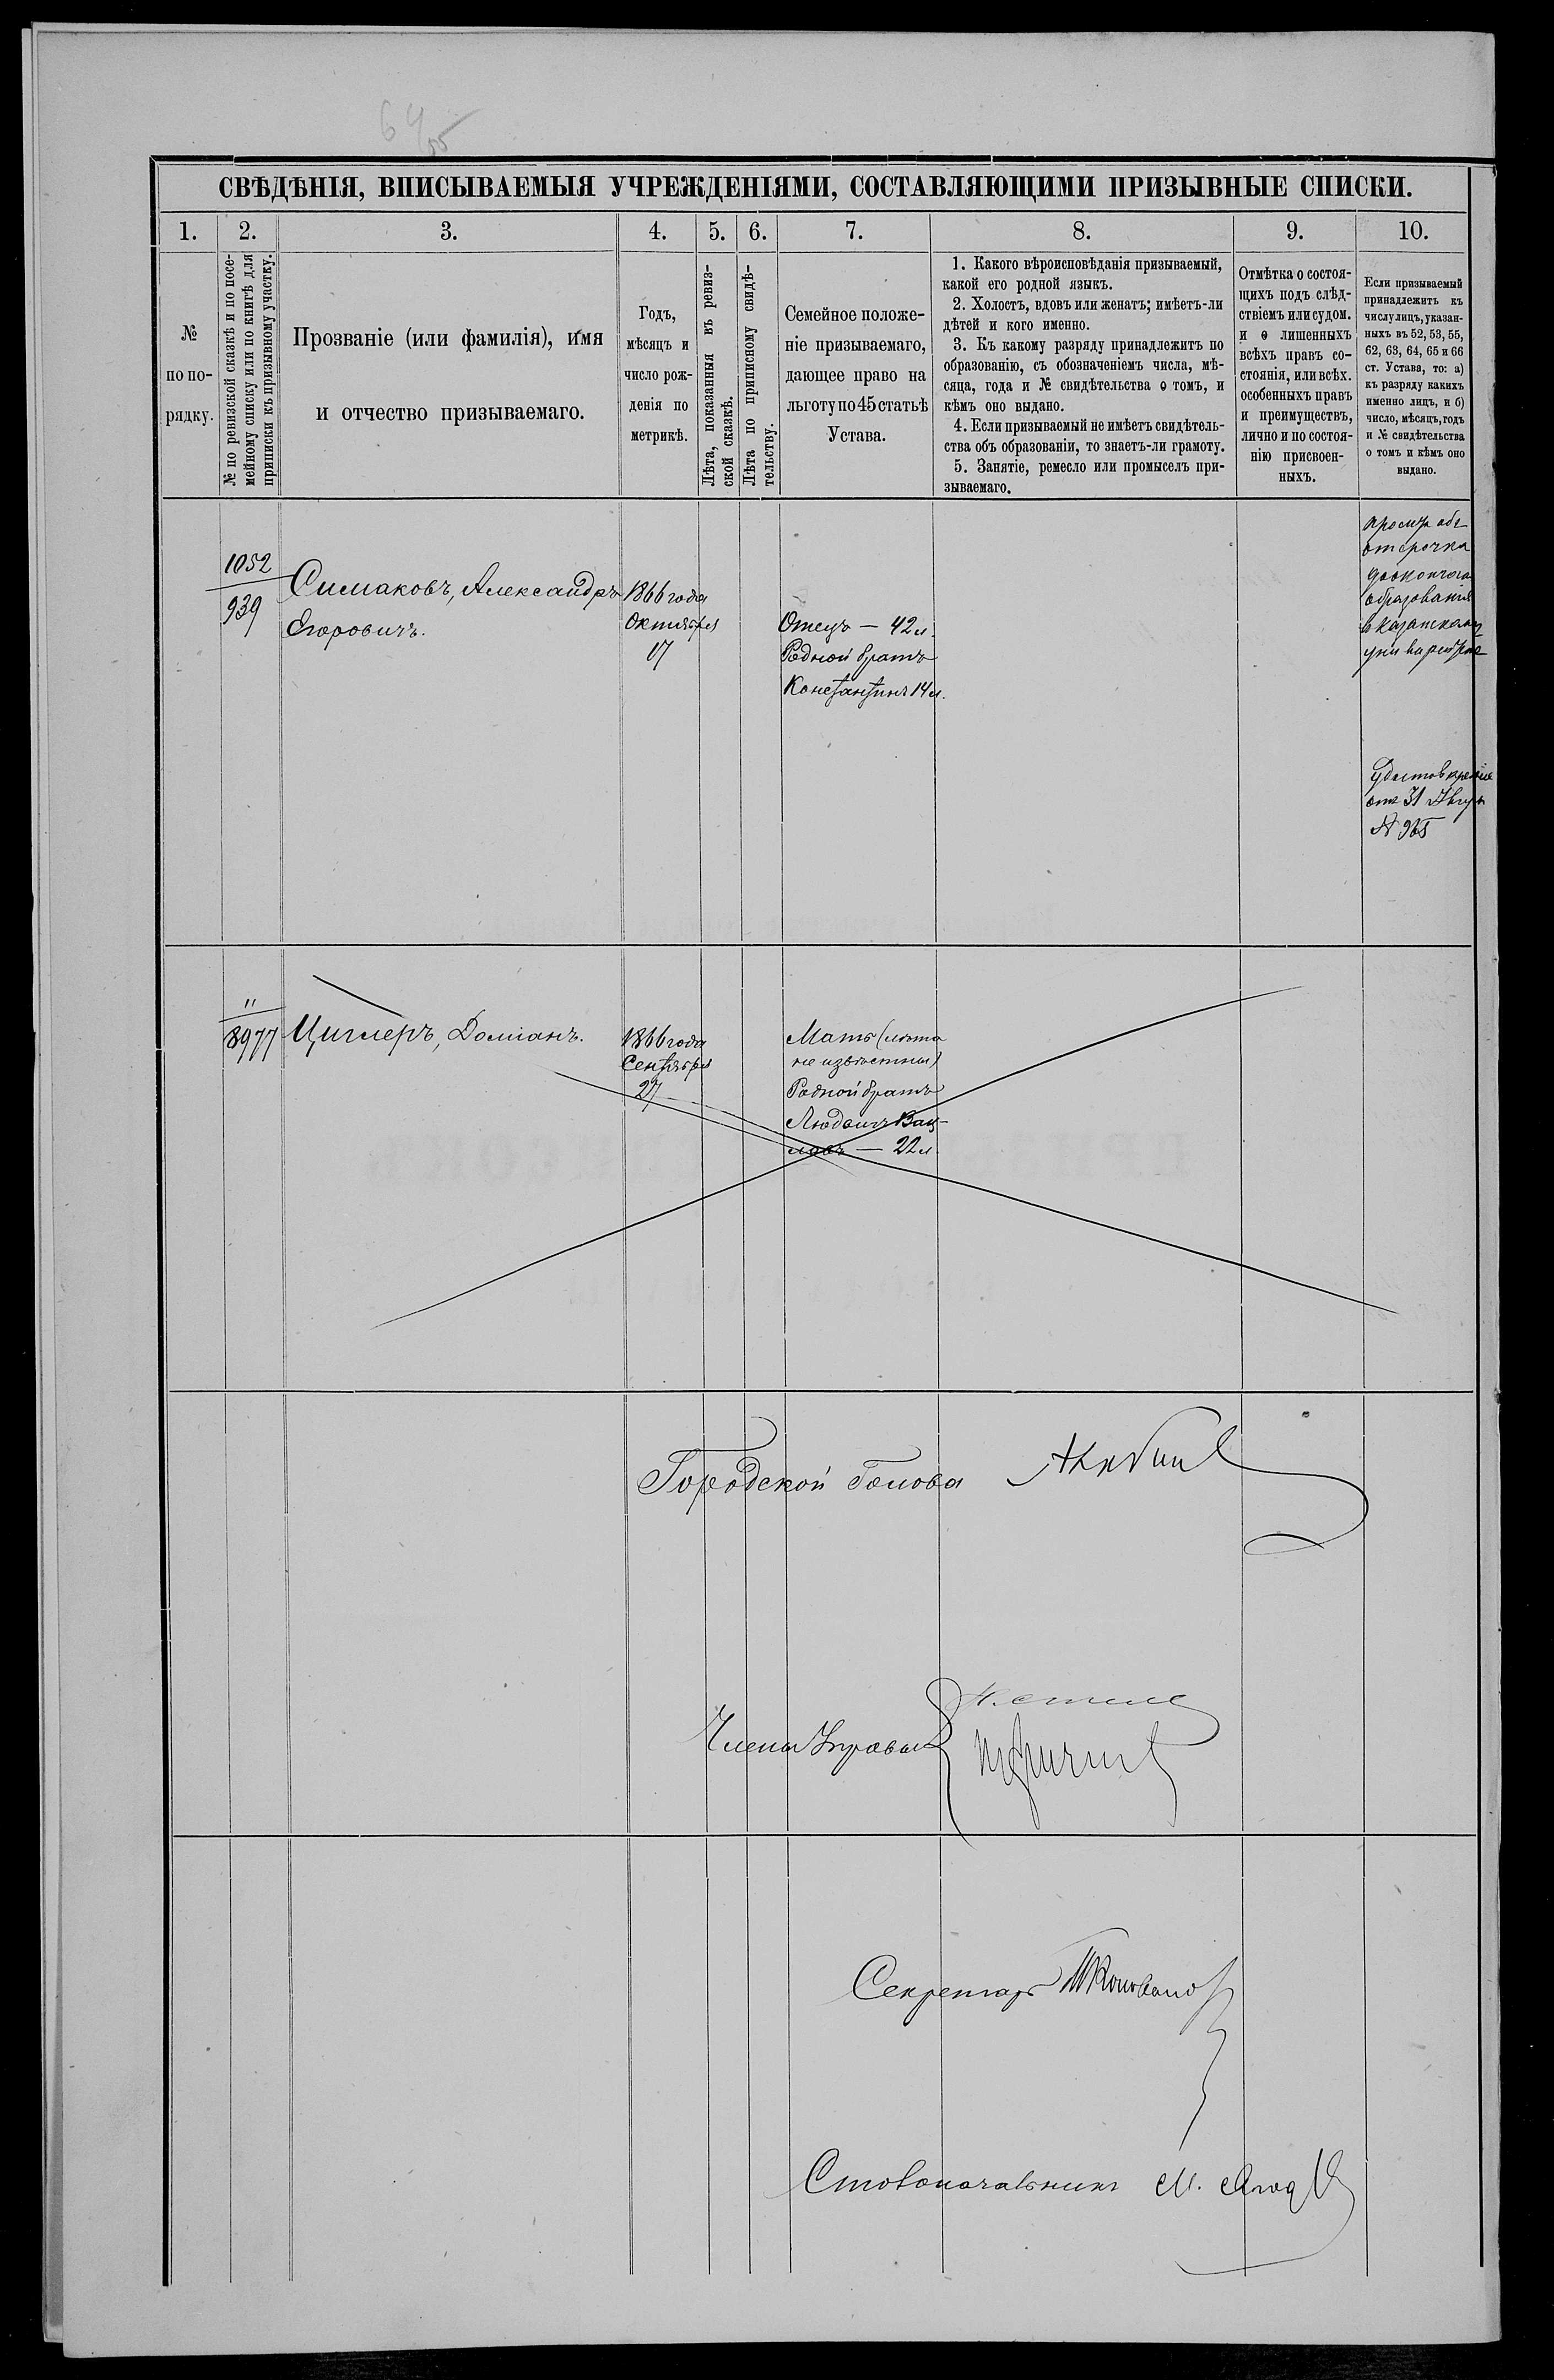 СВѢДѢНІЯ, ВПИСЫВАЕМЫЯ УЧРЕЖДЕНІЯМИ, СОСТАВЛЯЮЩИМИ ПРИЗЫВНЫЕ СПИСКИ.
1.
2.
3.
4.
5.
6.
7.
8.
9.
10.
№
по по-
рядку.
№ по ревизской сказкѣ и по посе-
мейному списку или по книгѣ для
приписки къ призывному участку.
Прозваніе (или фамилія), имя
и отчество призываемаго.
Годъ,
мѣсяцъ и
число рож-
денія по
метрикѣ.
Лѣта, показанныя въ ревиз-
ской сказкѣ.
Лѣта по приписному свидѣ-
тельству.
Семейное положе-
ніе призываемаго,
дающее право на
льготу по 45 статьѣ
Устава.
1. Какого вѣроисповѣданія призываемый,
какой его родной языкъ.
2. Холостъ, вдовъ или женатъ; имѣетъ-ли
дѣтей и кого именно.
3. Къ какому разряду принадлежитъ по
образованію, съ обозначеніемъ числа, мѣ-
сяца, года и № свидѣтельства о томъ, и
кѣмъ оно выдано.
4. Если призываемый не имѣетъ свидѣтель-
ства объ образованіи, то знаетъ-ли грамоту.
5. Занятіе, ремесло или промыселъ при-
зываемаго.
Отмѣтка о состоя-
щихъ подъ слѣд-
ствіемъ или судом.
и о лишенныхъ
всѣхъ правъ со-
стоянія, или всѣх.
особенныхъ правъ
и преимуществъ,
лично и по состоя-
нію присвоен-
ныхъ.
Если призываемый
принадлежитъ къ
числу лицъ, указан-
ныхъ въ 52, 53, 55,
62, 63, 64, 65 и 66
ст. Устава, то: а)
къ разряду какихъ
именно лицъ, и б)
число, мѣсяцъ, годъ
и № свидѣтельства
о томъ и кѣмъ оно
выдано.
1052
939
Симаковъ, Александръ
Егоровичъ.
1866 года
Октября
17
Отецъ — 42 л.
Родной братъ
Константинъ 14 л.
отсрочка
образованія
в Казанском
от 31
№ 965
"
8977
Циглеръ, Домианъ.
1866 года
Сентября
27
Мать (лѣта
не извѣстны)
Родной братъ
Людвигъ Вац-
лавъ — 22 л.
Городской Голова
Члены Управы
Секретарь
Столоначальникъ М.